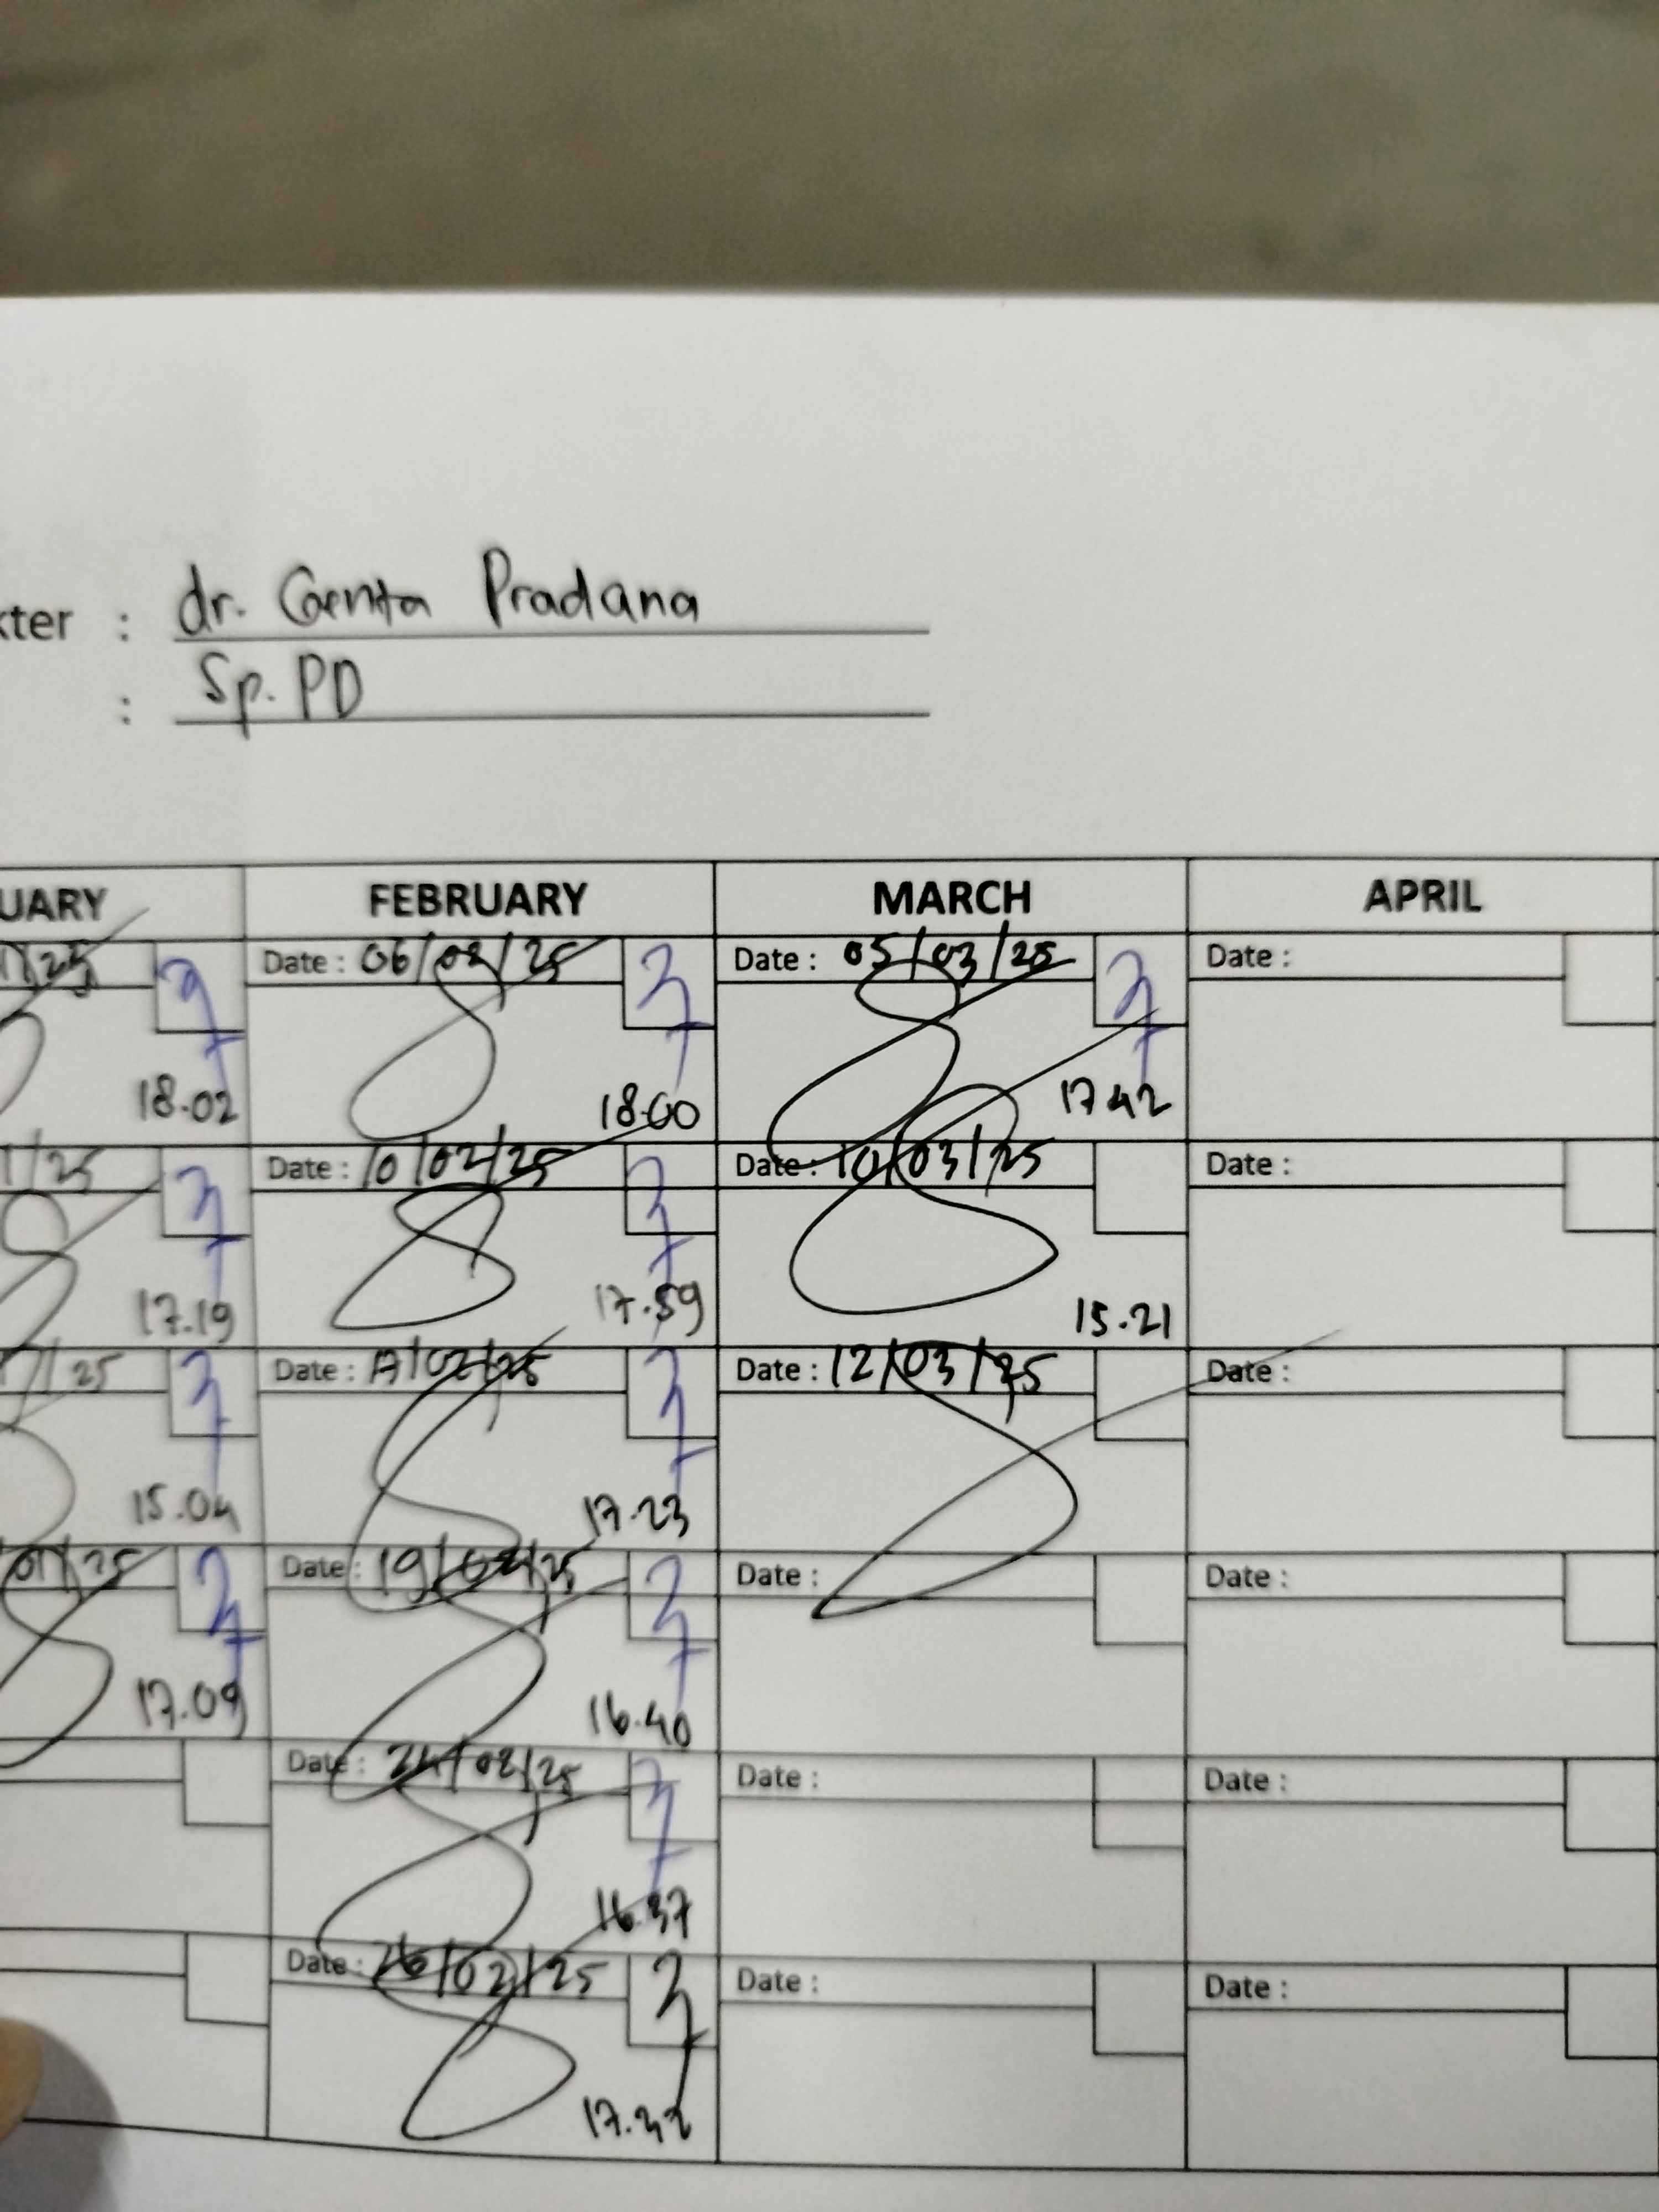 kter : dr. Genta Pradana
: Sp. PD
UARY FEBRUARY MARCH APRIL
/25 Date : 06/02/25 Date : 05/03/25 Date :
18.02 18.00 17.42
1/25 Date : 10/02/25 Date : 10/03/25 Date :
17.19 17.59 15.21
/25 Date : 17/02/25 Date : 12/03/25 Date :
15.04 17.23
01/25 Date : 19/02/25 Date : Date :
17.09 16.40
Date : 24/02/25 Date : Date :
16.37
Date : 26/02/25 Date : Date :
17.32